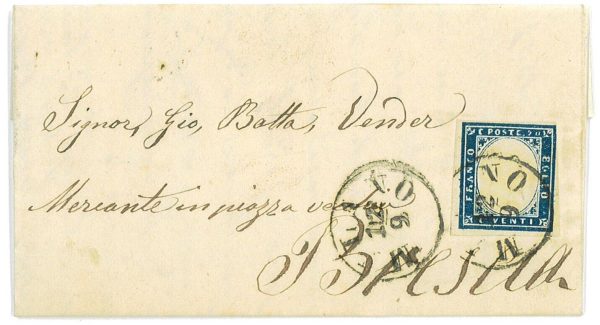 Signor, Gio, Batta, Vender
Mercante in piazza
Brescia
C. POSTE. 20
FRANCO
BOLLO
VENTI
NO
12
9
M
NO
12
9
M